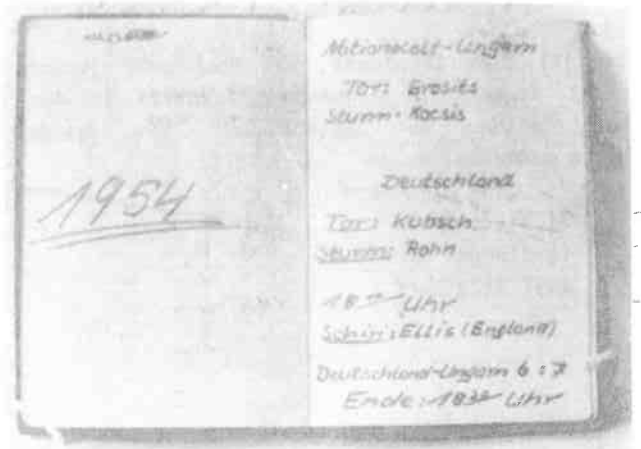 1954
Ungarn
Tor: Grosits
Sturm: Kocsis
Deutschland
Tor: Kubsch
Sturm: Rahn
18 Uhr
Schiri: Ellis (England)
Deutschland-Ungarn 6:7
Ende: 18 Uhr